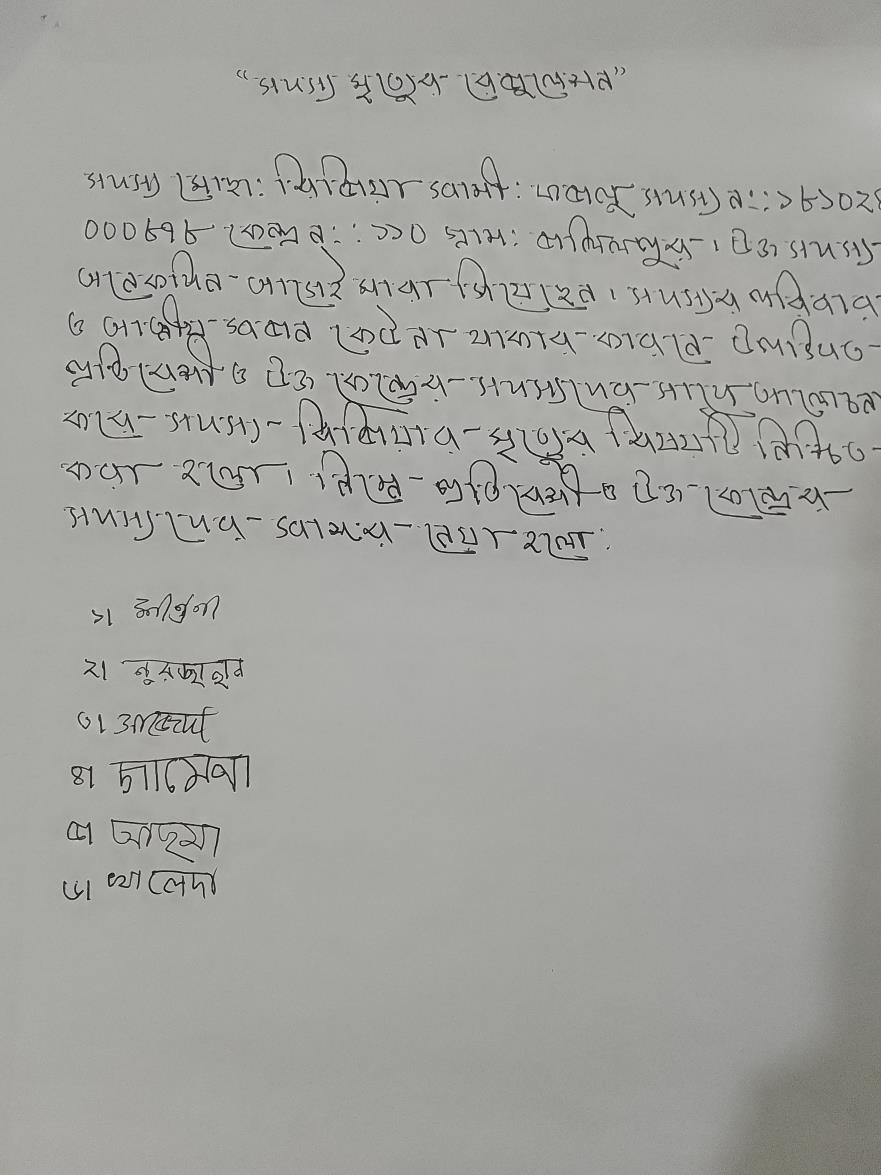 "সদস্য মৃত্যুর রেজুলেশন"
সদস্য মোছা: বিলকিয়ারা স্বামী: ফজলু সদস্য নং: ১৮১০২৪
000৪৭৮ কেন্দ্র নং: ১১০ গ্রাম: কালিকাপুর। উক্ত সদস্য
অনেকদিন আগেই মারা গিয়েছেন। সদস্যর পরিবার
ও আত্মীয়-স্বজন কেউ না থাকায় কারনে উপস্থিত
প্রতিবেশী ও উক্ত কেন্দ্রের সদস্যদের সাথে আলোচনা
করে সদস্য মৃত্যুর বিষয়টি নিশ্চিত
করা হলো। নিম্নে প্রতিবেশী ও উক্ত কেন্দ্রের
সদস্যদের স্বাক্ষর নেয়া হলো:
১।
২। নুরজাহান
৩।
৪। জামেনা
৫। আছমা
৬। খালেদা